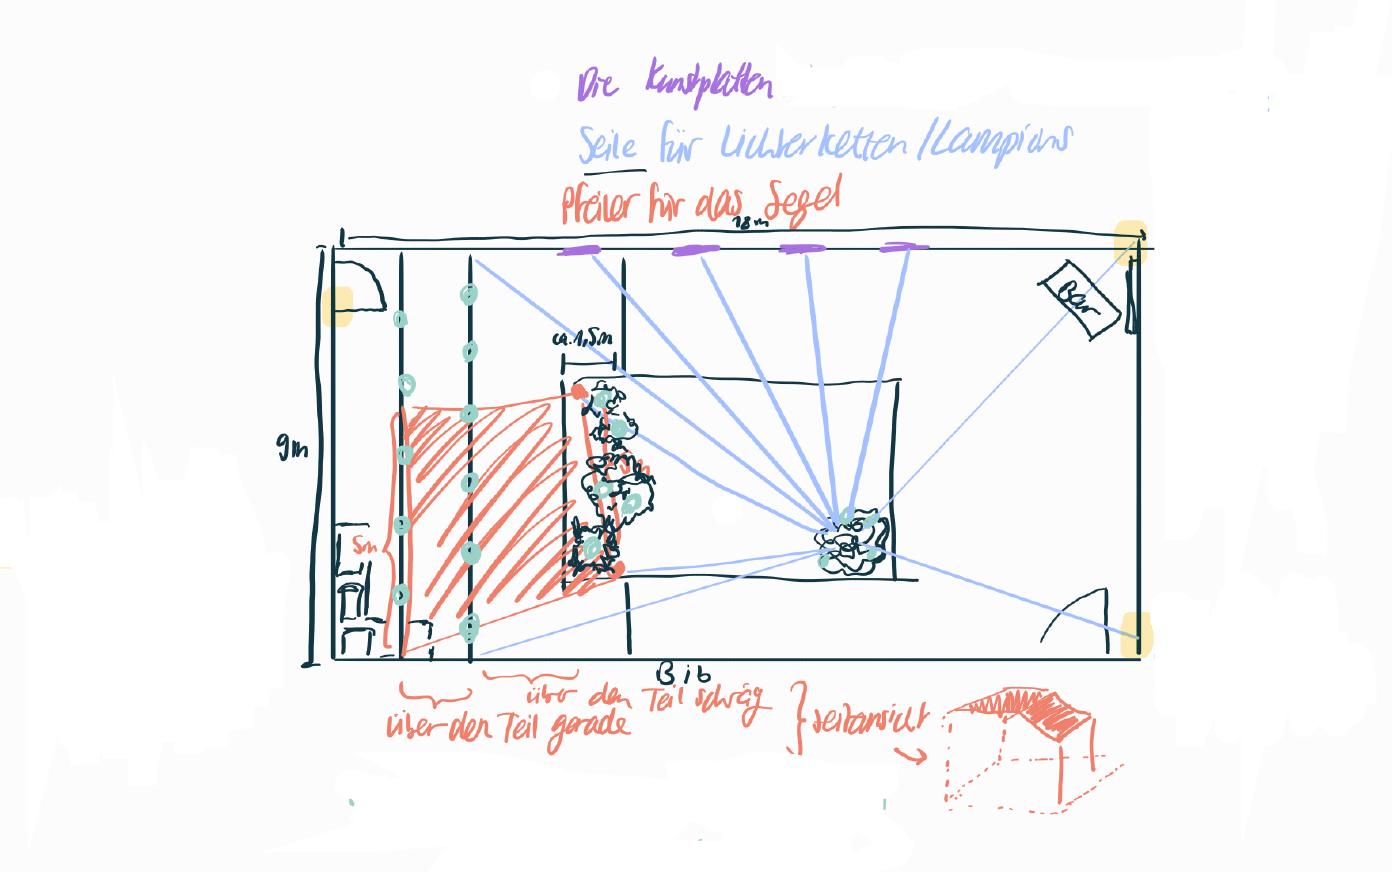 Die Kunstplatten
Seile für Lichterketten/Lampions
Pfeiler für das Segel
18m
Bar
ca. 1,5m
9m
5m
Bib
über den Teil schräg
über den Teil gerade
seitansicht